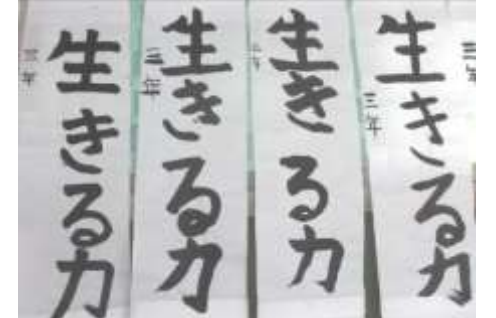 生きる力
三年
生きる力
生きる力
三年
生きる力
三年